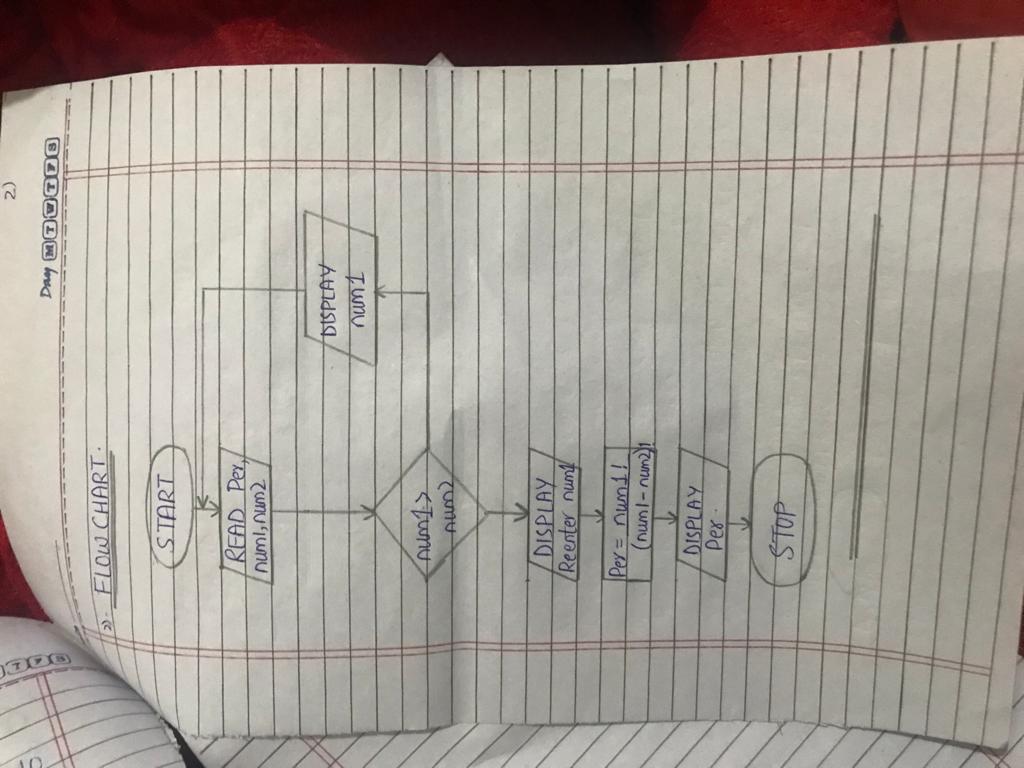 2)
Day M T W T F S
2). FLOWCHART.
START
READ Per,
num1, num2
num1 >
num2
DISPLAY
num1
DISPLAY
Reenter num1
Per = num1!
(num1 - num2)!
DISPLAY
Per.
STOP
T F S